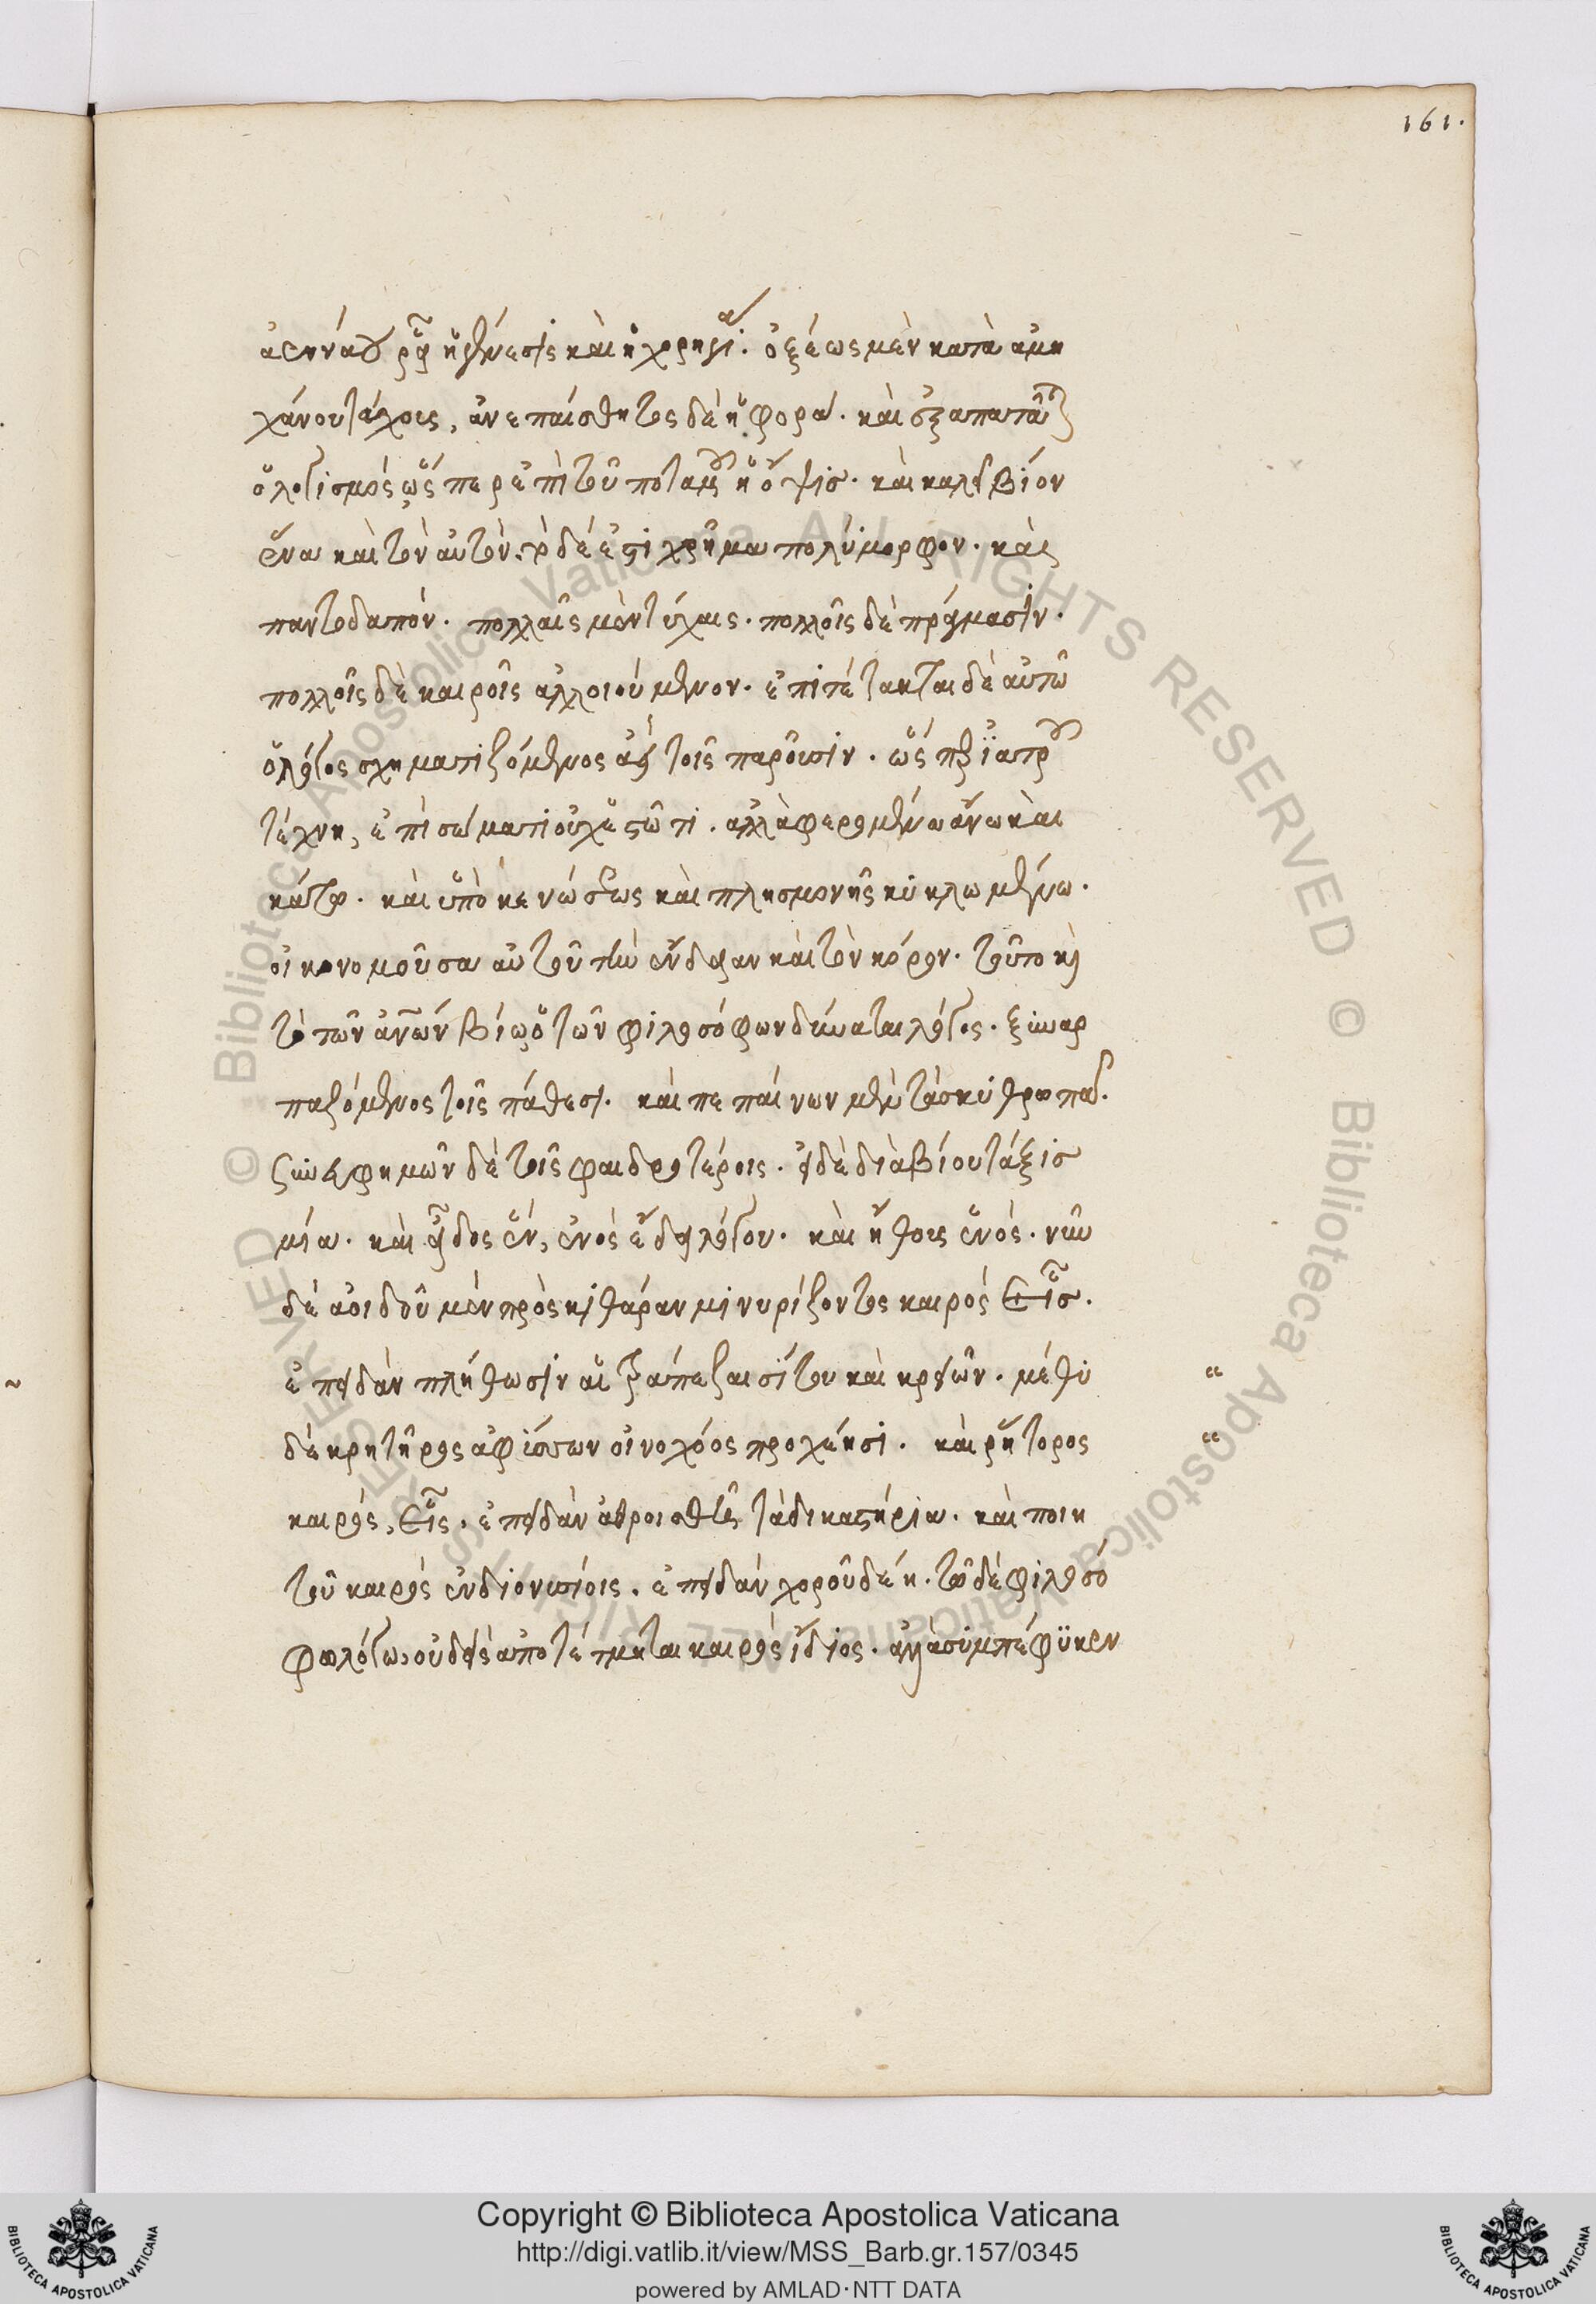 161.
ἀενάου ῥεῖ ἡ γένεσις καὶ ἡ χορηγία. ὀξέως μὲν κατὰ ἀμη
χάνου τάχους, ἀνεπαίσθητος δὲ ἡ φορά. καὶ ἐξαπατᾶται
ὁ λογισμὸς ὥσπερ ἐπὶ τοῦ ποταμοῦ ἡ ὄψισ. καὶ καλεῖ βίον
ἕνα καὶ τὸν αὐτόν. τὸ δέ ἐστι χρῆμα πολύμορφον. καὶ
παντοδαπόν. πολλαῖς μὲν τύχαις. πολλοῖς δὲ πράγμασιν.
πολλοῖς δὲ καιροῖς ἀλλοιούμενον. ἐπιτέτακται δὲ αὐτῶ
ὁ λόγος σχηματιζόμενος ἀεὶ τοῖς παροῦσιν. ὥσπερ ἰατροῦ
τέχνη, ἐπὶ σώματι οὐχ ἑστῶτι. ἀλλὰ φερομένω ἄνω καὶ
κάτω. καὶ ὑπὸ κενώσεως καὶ πλησμονῆς κυκλωμένω.
οἰκονομοῦσα αὐτοῦ τὴν ἔνδειαν καὶ τὸν κόρον. τοῦτο καὶ
τῶ τῶν ἀνθρώπων βίω ὁ τῶν φιλοσόφων δύναται λόγος. ξυναρ
παζόμενος τοῖς πάθεσι. καὶ πεπαίνων μὲν τὰ σκυθρωπά.
ξυνευφημῶν δὲ τοῖς φαιδροτέροις. εἰ δὲ διὰ βίου τάξισ
μία. καὶ εἶδος ἕν, ἑνὸς ἔδει λόγου. καὶ ἤθους ἑνός. νῦν
δὲ ἀοιδοῦ μὲν πρὸς κιθάραν μινυρίζοντος καιρός ἐστιν εἷσ.
ἐπειδὰν πλήθωσιν αἱ τράπεζαι σίτου καὶ κρειῶν. μέθυ “
δὲ κρητῆρος ἀφύσσων οἰνοχόος προχέησι. καὶ ῥήτορος “
καιρός, εἷς. ἐπειδὰν ἀθροισθῆ τὰ δικαστήρια. καὶ ποιη
τοῦ καιρὸς ἐν διονυσίοις. ἐπειδὰν χοροῦ δέη. τῶ δὲ φιλοσό
φω λόγω, οὐδεὶς ἀποτέτμηται καιρὸς ἴδιος. ἀλλὰ συμπέφυκεν
© Biblioteca Apostolica Vaticana ALL RIGHTS RESERVED © Biblioteca Apostolica Vaticana ALL RIGHTS RESERVED
Copyright © Biblioteca Apostolica Vaticana
http://digi.vatlib.it/view/MSS_Barb.gr.157/0345
powered by AMLAD·NTT DATA
BIBLIOTECA APOSTOLICA VATICANA
BIBLIOTECA APOSTOLICA VATICANA